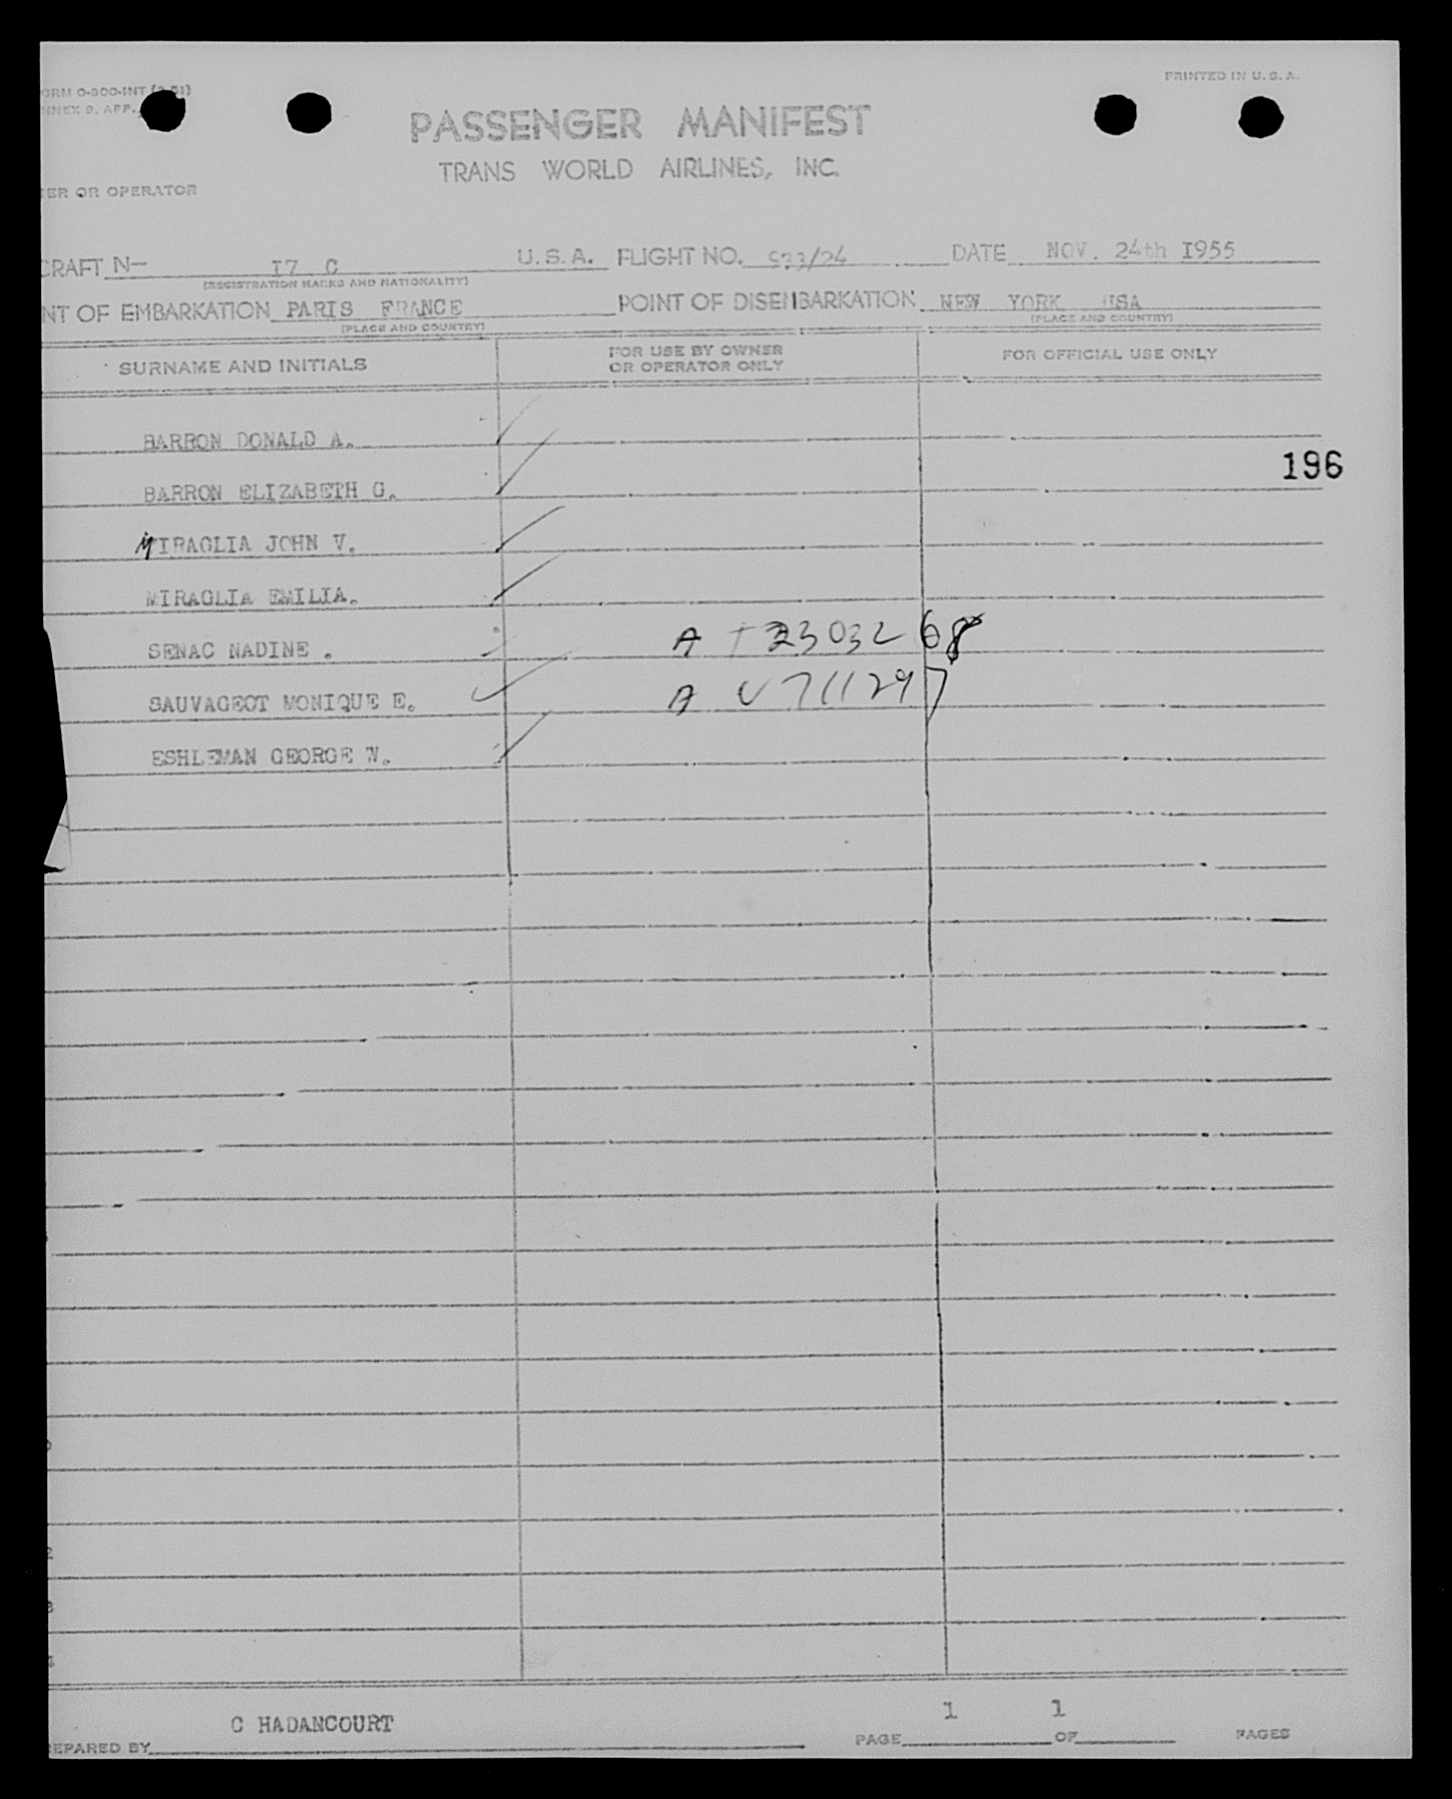 PRINTED IN U.S.A.
ORM O-800-INT
NNEX 9. APP.
PASSENGER MANIFEST
TRANS WORLD AIRLINES, INC.
ER OR OPERATOR
CRAFT N- I7 C U.S.A. FLIGHT NO. /24 DATE NOV. 24th I955
(REGISTRATION MARKS AND NATIONALITY)
NT OF EMBARKATION PARIS FRANCE POINT OF DISEMBARKATION NEW YORK USA
(PLACE AND COUNTRY) (PLACE AND COUNTRY)
SURNAME AND INITIALS FOR USE BY OWNER OR OPERATOR ONLY FOR OFFICIAL USE ONLY
BARRON DONALD A.
196
BARRON ELIZABETH G.
MIRAGLIA JOHN V.
MIRAGLIA EMILIA.
SENAC NADINE . A
SAUVAGEOT MONIQUE E. A V 711297
ESHLEMAN GEORGE W.
C HADANCOURT 1 1
EPARED BY PAGE OF PAGES